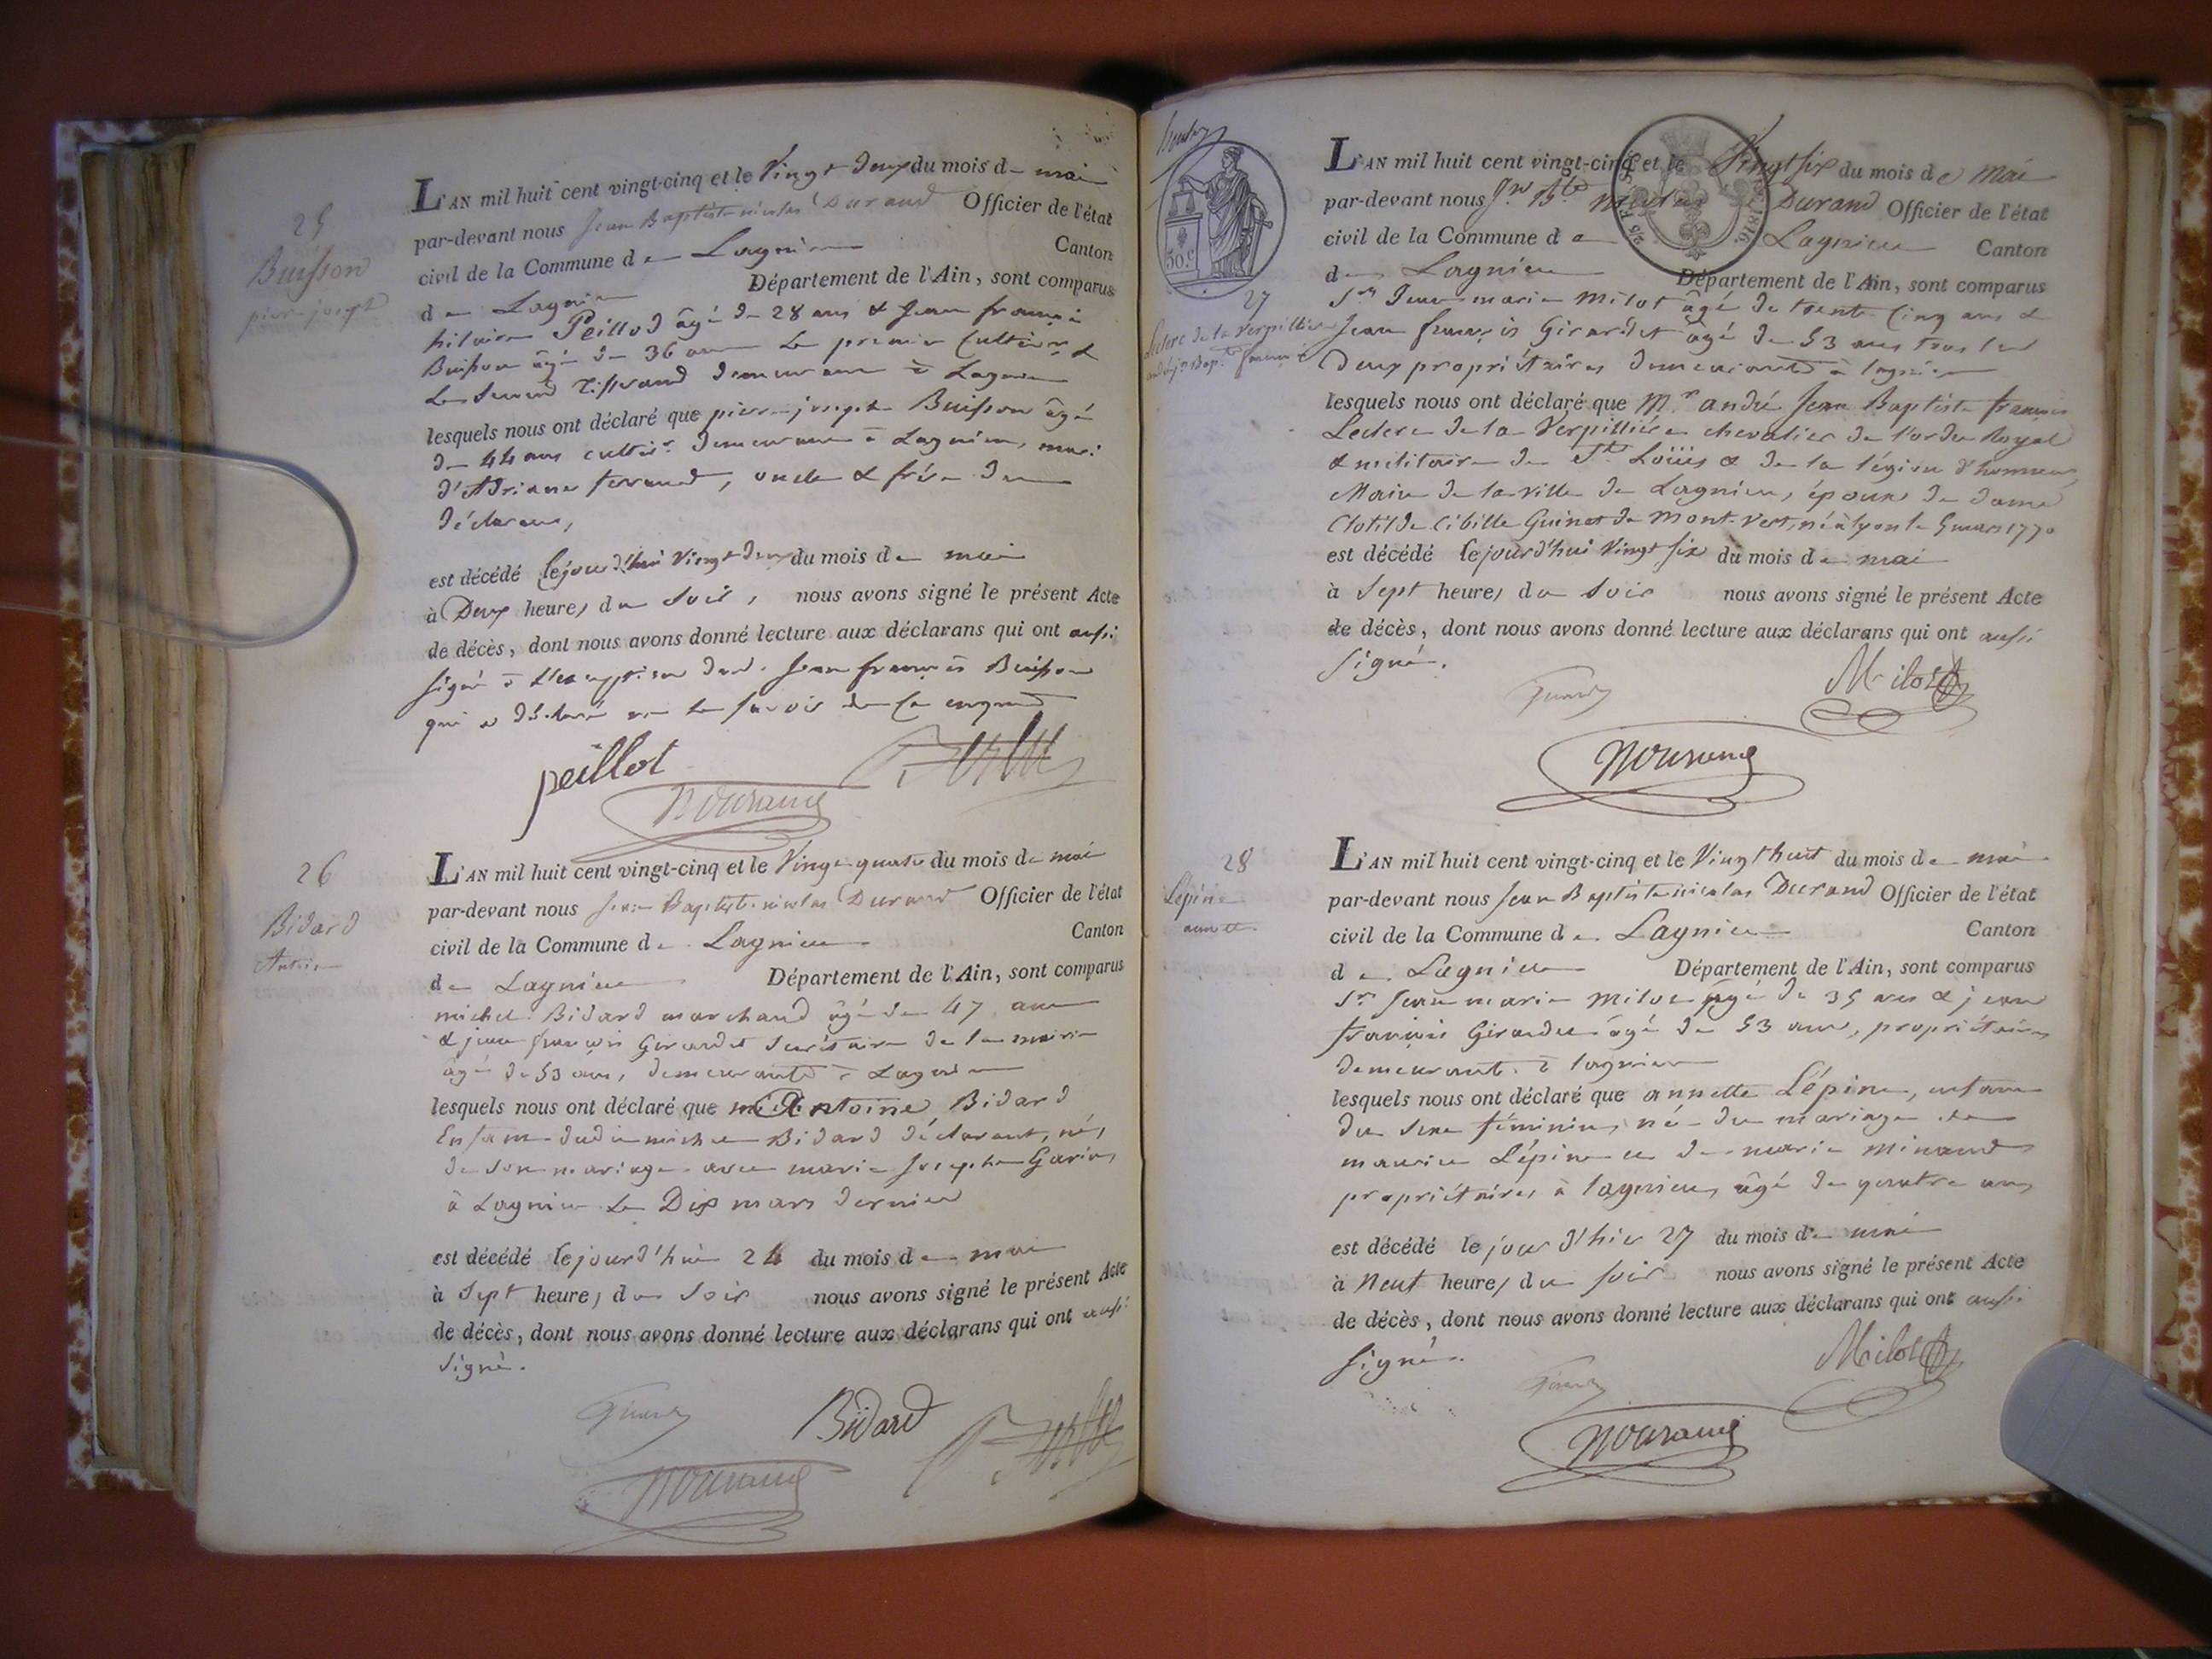 25
Buisson
pierre-joseph
L'AN mil huit cent vingt-cinq et le Vingt Deux du mois de mai
par-devant nous Jean Baptiste nicolas Durand Officier de l'état
civil de la Commune de Lagnieu Canton
de Lagnieu Département de l'Ain, sont comparus
hilaire Peillod âgé de 28 ans & Jean françois
Buisson âgé de 36 ans Le premier Cultivr &
Le Second Tisserand demeurant à Lagnieu
lesquels nous ont déclaré que pierre-joseph Buisson âgé
de 44 ans cultivr demeurant à Lagnieu, mari
d'Adriane, oncle & frère des
déclarans,
est décédé cejourd'hui vingt deux du mois de mai
à Deux heures du soir, nous avons signé le présent Acte
de décès, dont nous avons donné lecture aux déclarans qui ont aussi
signé à l'exception dud. Jean françois Buisson
qui a déclaré ne le savoir de ce enquis
peillot
NDurand
26
Bidard
Antoine
L'AN mil huit cent vingt-cinq et le Vingt-quatre du mois de mai
par-devant nous Jean Baptiste nicolas Durand Officier de l'état
civil de la Commune de Lagnieu Canton
de Lagnieu Département de l'Ain, sont comparus
michel Bidard marchand âgé de 47 ans
& jean françois Girardet Secrétaire de la mairie
âgé de 53 ans, demeurants à Lagnieu
lesquels nous ont déclaré que Antoine Bidard
Enfant dudit michel Bidard déclarant, né,
de son mariage avec marie Josephe Garin,
à Lagnieu Le Dix mars dernier
est décédé cejourd'hui 24 du mois de mai
à Sept heures du Soir nous avons signé le présent Acte
de décès, dont nous avons donné lecture aux déclarans qui ont aussi
signé.
Girardet
Bidard
NDurand
50.c
27
Leclerc de la Verpillière
andré jn Bapte françois
L'AN mil huit cent vingt-cinq et le Vingt six du mois de Mai
par-devant nous Jn Bte nicolas Durand Officier de l'état
civil de la Commune de Lagnieu Canton
de Lagnieu Département de l'Ain, sont comparus
Sr Jean marie Milot âgé de trente Cinq ans &
Jean françois Girardet âgé de 53 ans tous les
Deux propriétaires demeurants à lagnieu
lesquels nous ont déclaré que Mr andré Jean Baptiste françois
Leclerc de la Verpillière chevalier de l'ordre Royal
& militaire de St Loüis & de la légion d'honneur,
Maire de la ville de Lagnieu, époux de dame
Clotilde Cibille Guinet de Mont-Vert, né à lyon le 5 mars 1770
est décédé cejourd'hui Vingt six du mois de mai
à Sept heures du Soir nous avons signé le présent Acte
de décès, dont nous avons donné lecture aux déclarans qui ont aussi
signé.
Girardet
Milot
NDurand
28
Lépine
annette
L'AN mil huit cent vingt-cinq et le Vingt huit du mois de mai
par-devant nous Jean Baptiste nicolas Durand Officier de l'état
civil de la Commune de Lagnieu Canton
de Lagnieu Département de l'Ain, sont comparus
Sr Jean marie Milot âgé de 35 ans & jean
françois Girardet âgé de 53 ans, propriétaires
demeurants à lagnieu
lesquels nous ont déclaré que annette Lépine, enfant
du sexe féminin, né du mariage de
maurice Lépine et de marie minaud
propriétaires à lagnieu, âgé de quatre ans,
est décédé le jour d'hier 27 du mois de mai
à Neuf heures du soir nous avons signé le présent Acte
de décès, dont nous avons donné lecture aux déclarans qui ont aussi
signé.
Girardet
Milot
NDurand